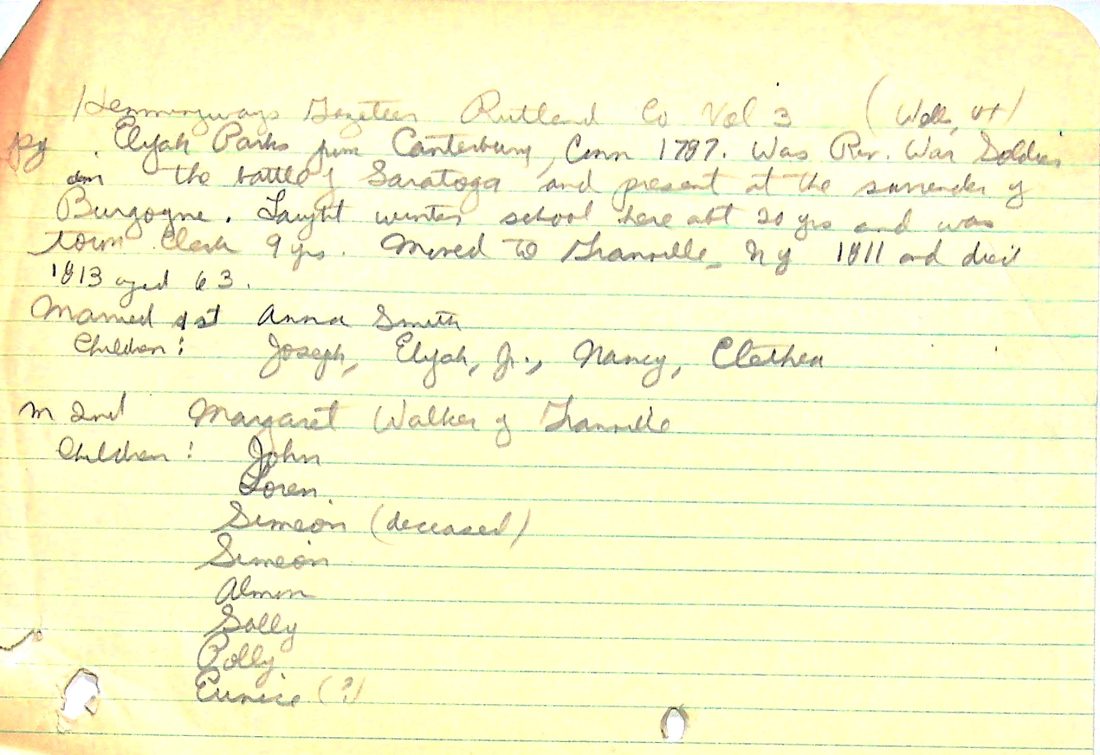 Hemmingways Gazeteer Rutland Co Vol 3 (Wells, Vt)
pg Elijah Parks from Canterbury, Conn 1787. Was Rev. War Soldier
in the battle of Saratoga and present at the surrender of
Burgogne. Taught winter school here abt 20 yrs and was
town clerk 9 yrs. Moved to Granville, N y 1811 and died
1813 aged 63.
Married 1st Anna Smith
Children: Joseph, Elijah, Jr., Nancy, Clethea
m 2nd Margaret Walker of Granville
Children: John
Loren
Simeon (deceased)
Simeon
Almon
Sally
Polly
Eunice (?)